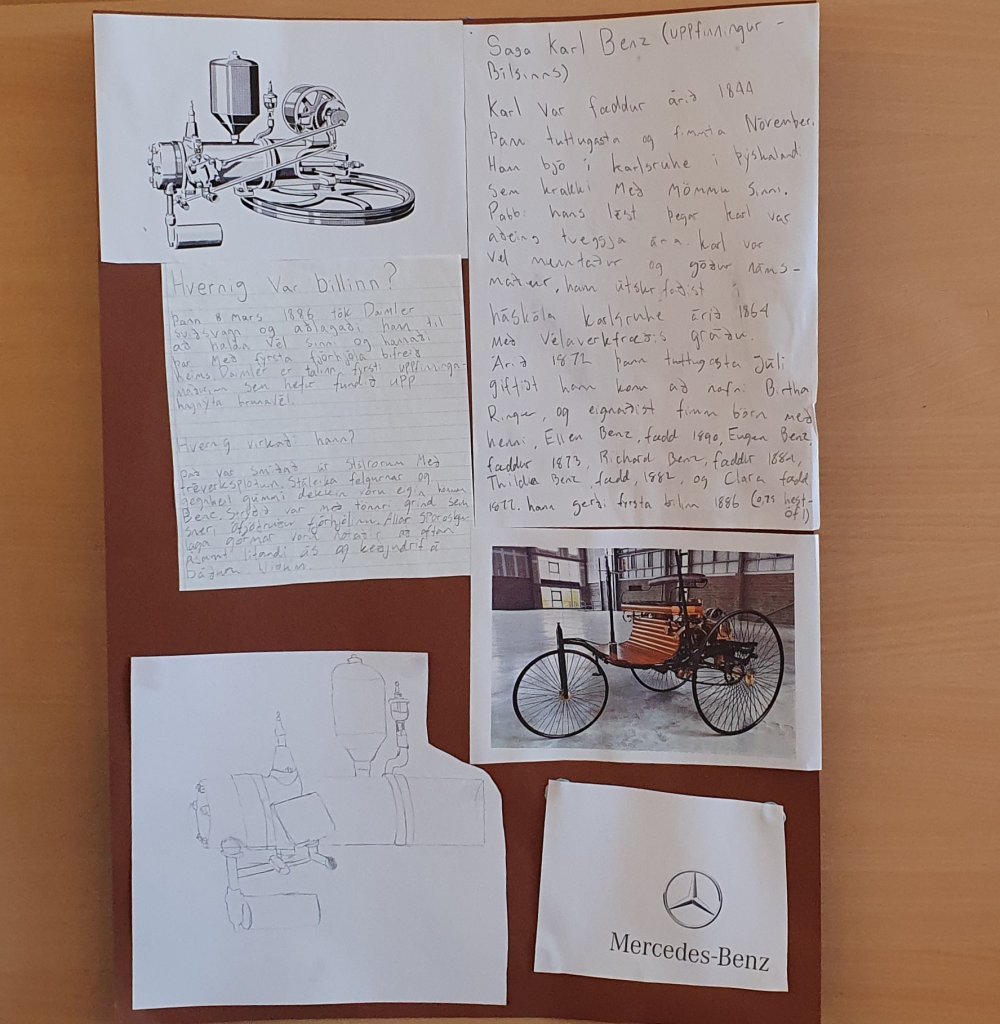 Saga Karl Benz (uppfinningur -
Bílsinns)
Karl var fæddur árið 1844
Þann tuttugasta og fimmta November.
Han bjó í karlsruhe i þýskalandi
sem krakki Með Mömmu sinni.
Pabbi hans lést þegar karl var
aðeins tveggja ára. karl var
vel menntaður og góður náms-
maður, han útskrifaðist í
háskóla karlsruhe árið 1864
með vélaverkfræðis gráðu.
Árið 1872 þann tuttugasta Júli
giftist han konu að nafni Birtha
Ringer, og eignaðist fimm börn með
henni, Ellen Benz, fædd 1890, Eugen Benz,
fæddur 1873, Richard Benz, fæddur 1884,
Thilda Benz fædd, 1882, og Clara fædd
1877. han gerði fyrsta bílin 1886 (0,75 hest-
öfl)
Hvernig Var bíllinn?
Þann 8 Mars 1886 tók Daimler
og aðlagaði han til
að halda vél sinni og hannaði
þar Með fyrsta fjórhjóla bifreið
heims. Daimler er talinn fyrsti uppfinninga-
maðurinn sem hefir fundið upp
hagnýta brunavél.
Hvernig virkaði hann?
Það var smíðað úr stálrörum Með
treverksplötum. Stáleika felgurnar og
gegnheil gúmmí dekkin voru eigin hönnun
Benz. Stýrið var með tönnri grind sem
sneri fjórhjólinu. Allar
laga gormar voru notaðir að aftan
ásamt lifandi ás og keðjudrif á
báðum
Mercedes-Benz